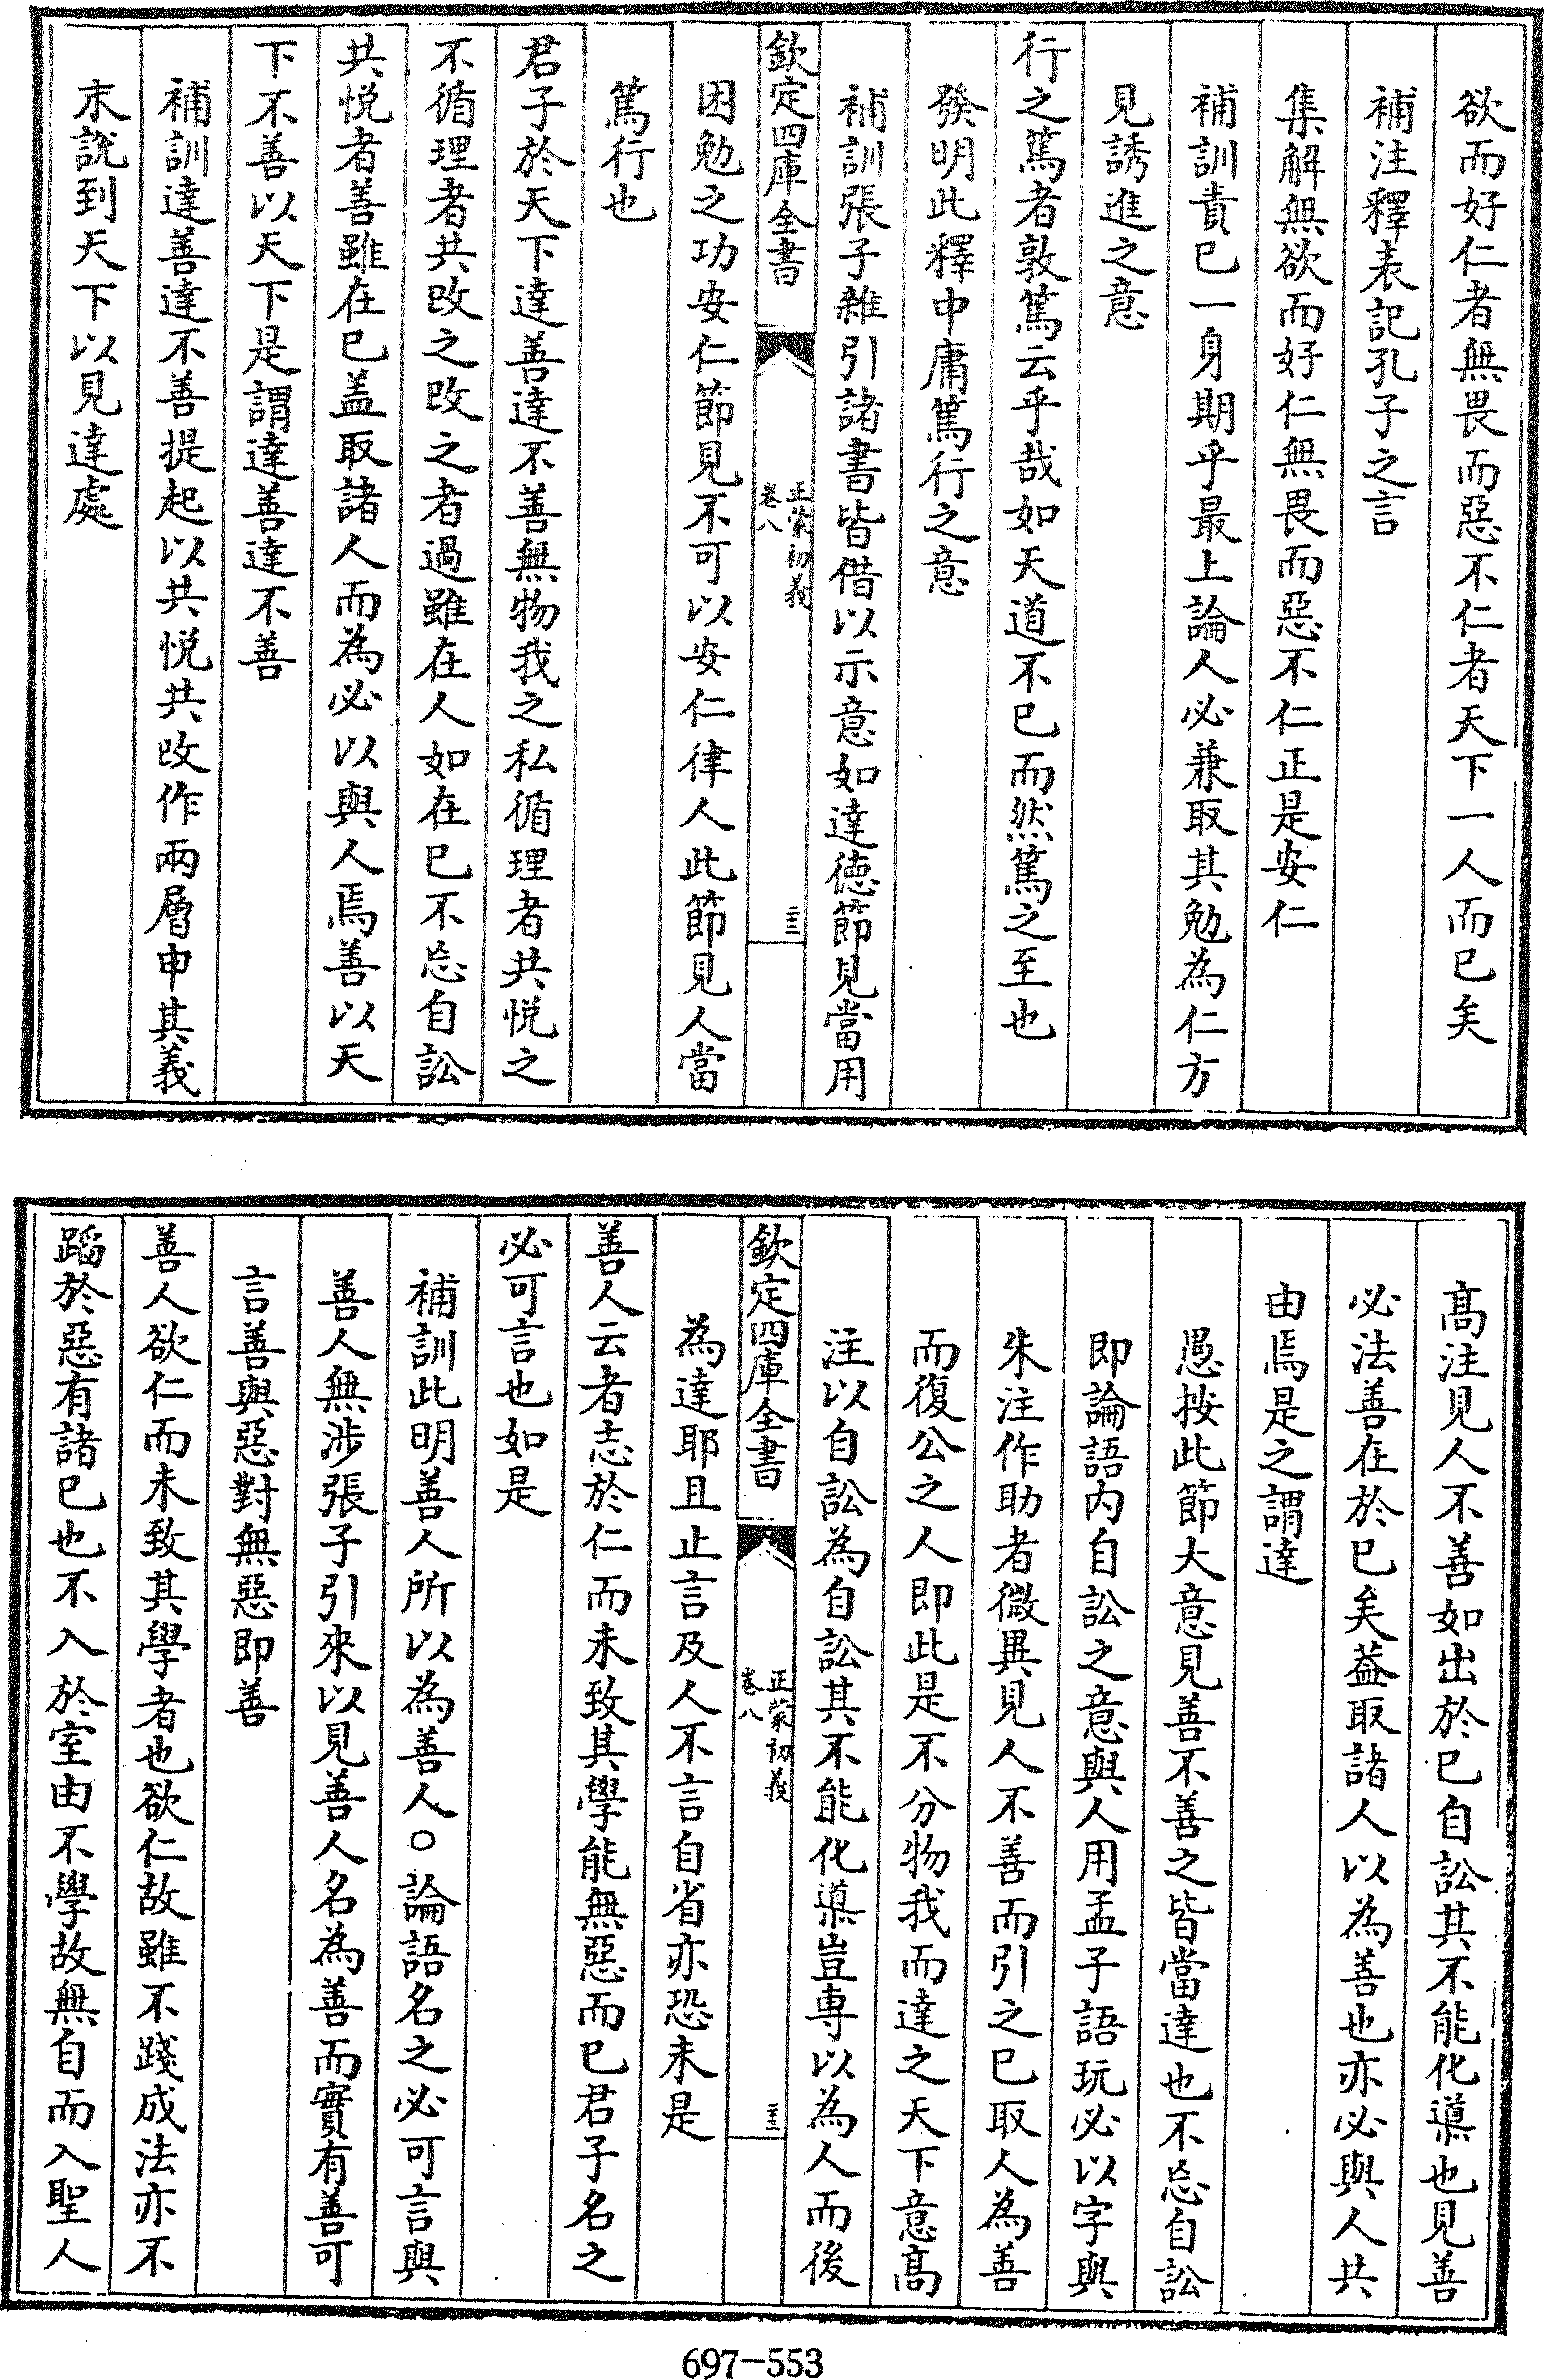 欲而好仁者無畏而惡不仁者天下一人而已矣
補注釋表記孔子之言
集解無欲而好仁無畏而惡不仁正是安仁
補訓責已一身期乎最上論人必兼取其勉為仁方
見誘進之意
行之篤者敦篤云乎哉如天道不已而然篤之至也
發明此釋中庸篤行之意
補訓張子雜引諸書皆借以示意如達徳節見當用
欽定四庫全書
正蒙初義
卷八
二十三
困勉之功安仁節見不可以安仁律人此節見人當
篤行也
君子於天下達善達不善無物我之私循理者共悦之
不循理者共改之改之者過雖在人如在已不忘自訟
共悦者善雖在已盖取諸人而為必以與人焉善以天
下不善以天下是謂達善達不善
補訓達善達不善提起以共悦共改作兩層申其義
末說到天下以見達處
髙注見人不善如出於已自訟其不能化導也見善
必法善在於已矣葢取諸人以為善也亦必與人共
由焉是之謂達
愚按此節大意見善不善之皆當達也不忘自訟
即論語内自訟之意與人用孟子語玩必以字與
朱注作助者微異見人不善而引之已取人為善
而復公之人即此是不分物我而達之天下意髙
注以自訟為自訟其不能化導豈専以為人而後
欽定四庫全書
正蒙初義
卷八
二十三
為達耶且止言及人不言自省亦恐未是
善人云者志於仁而未致其學能無惡而已君子名之
必可言也如是
補訓此明善人所以為善人○論語名之必可言與
善人無涉張子引來以見善人名為善而實有善可
言善與惡對無惡即善
善人欲仁而未致其學者也欲仁故雖不踐成法亦不
蹈於惡有諸已也不入於室由不學故無自而入聖人
697-553